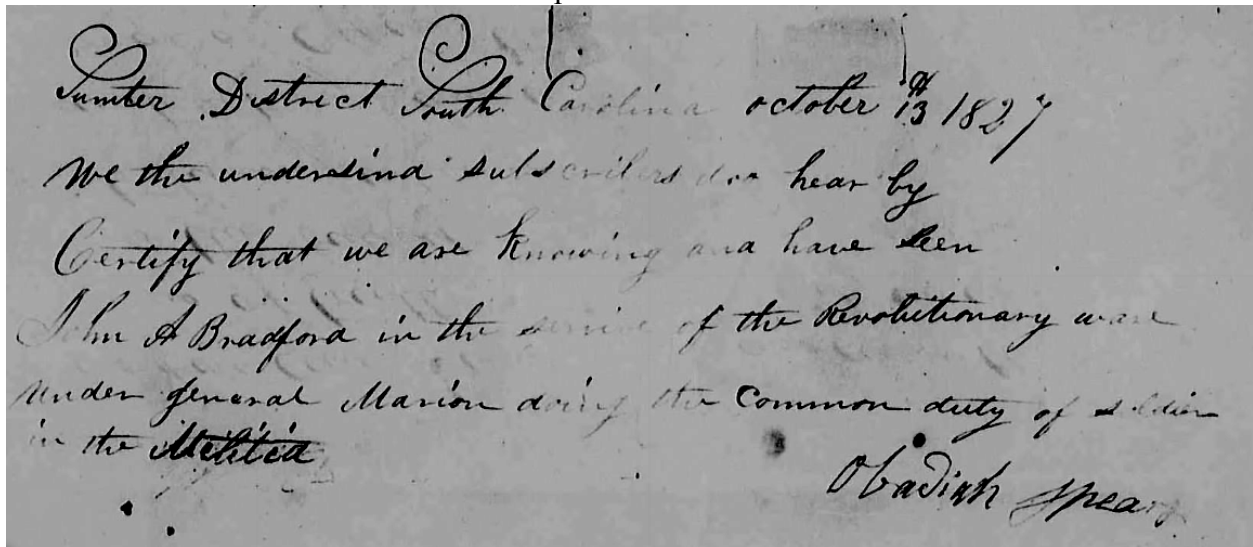 Sumter District South Carolina october 13th 1827
We the undersind subscribers doo hear by
Certify that we are Knowing and have seen
John A Bradford in the service of the Revolutionary ware
under general Marion doing the Common duty of soldier
in the Melitia
Obadiah Spears